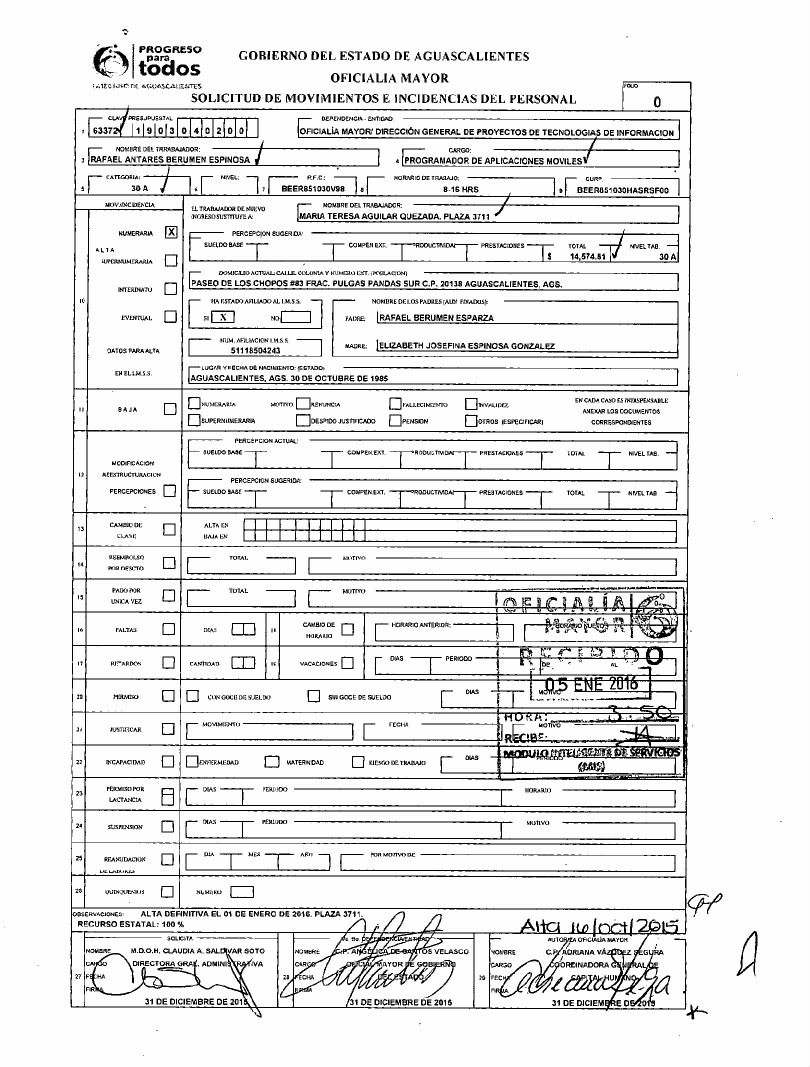 PROGRESO
para
todos
GOBIERNO DEL ESTADO DE AGUASCALIENTES
OFICIALIA MAYOR
SOLICITUD DE MOVIMIENTOS E INCIDENCIAS DEL PERSONAL
FOLIO
0
CLAVE PRESUPUESTAL
DEPENDENCIA - ENTIDAD:
1 63372 1 9 0 3 0 4 0 2 0 0
OFICIALÍA MAYOR/ DIRECCIÓN GENERAL DE PROYECTOS DE TECNOLOGIAS DE INFORMACION
NOMBRE DEL TRRABAJADOR:
CARGO:
3 RAFAEL ANTARES BERUMEN ESPINOSA
4 PROGRAMADOR DE APLICACIONES MOVILES
CATEGORIA: NIVEL: R.F.C.: HORARIO DE TRABAJO: CURP.
5 30 A 6 7 BEER851030V98 8 8-16 HRS 9 BEER851030HASRSF00
MOV./INCIDENCIA
EL TRABAJADOR DE NUEVO
INGRESO SUSTITUYE A:
NOMBRE DEL TRABAJADOR:
MARIA TERESA AGUILAR QUEZADA. PLAZA 3711
NUMERARIA X
PERCEPCION SUGERIDA:
SUELDO BASE COMPEN EXT. PRODUCTIVIDAD PRESTACIONES TOTAL NIVEL TAB.
$ 14,574.81 30 A
ALTA
SUPERNUMERARIA
DOMICILIO ACTUAL: CALLE. COLONIA Y NUMERO EXT. (POBLACION)
PASEO DE LOS CHOPOS #83 FRAC. PULGAS PANDAS SUR C.P. 20138 AGUASCALIENTES, AGS.
INTERINATO
10
HA ESTADO AFILIADO AL I.M.S.S.
NOMBRE DE LOS PADRES (AUN FINADOS):
EVENTUAL
SI X NO
PADRE: RAFAEL BERUMEN ESPARZA
NUM. AFILIACION I.M.S.S.
51118504243
MADRE: ELIZABETH JOSEFINA ESPINOSA GONZALEZ
DATOS PARA ALTA
EN EL I.M.S.S.
LUGAR Y FECHA DE NACIMIENTO: (ESTADO)
AGUASCALIENTES, AGS. 30 DE OCTUBRE DE 1985
11 BAJA
NUMERARIA MOTIVO: RENUNCIA FALLECIMIENTO INVALIDEZ
SUPERNUMERARIA DESPIDO JUSTIFICADO PENSION OTROS (ESPECIFICAR)
EN CADA CASO ES INDISPENSABLE
ANEXAR LOS DOCUMENTOS
CORRESPONDIENTES
PERCEPCION ACTUAL:
SUELDO BASE COMPEN.EXT. PRODUCTIVIDAD PRESTACIONES TOTAL NIVEL TAB.
MODIFICACION
12 REESTRUCTURACION
PERCEPCIONES
PERCEPCION SUGERIDA:
SUELDO BASE COMPEN.EXT. PRODUCTIVIDAD PRESTACIONES TOTAL NIVEL TAB
13 CAMBIO DE
CLAVE
ALTA EN
BAJA EN
14 REEMBOLSO
POR DESCTO
TOTAL MOTIVO
15 PAGO POR
UNICA VEZ
TOTAL MOTIVO
16 FALTAS DIAS 18 CAMBIO DE
HORARIO
HORARIO ANTERIOR: HORARIO NUEVO:
17 RETARDOS CANTIDAD 19 VACACIONES DIAS PERIODO
DE AL
20 PERMISO CON GOCE DE SUELDO SIN GOCE DE SUELDO DIAS MOTIVO
21 JUSTIFICAR MOVIMIENTO FECHA MOTIVO
22 INCAPACIDAD ENFERMEDAD MATERNIDAD RIESGO DE TRABAJO DIAS PERIODO
OFICIALÍA
MAYOR
RECIBIDO
05 ENE 2016
HORA: 3:50
RECIBE:
MODULO INTELIGENTE DE SERVICIOS
(MIS)
23 PERMISO POR
LACTANCIA
DIAS PERIODO HORARIO
24 SUSPENSION DIAS PERIODO MOTIVO
25 REANUDACION
DE LABORES
DIA MES AÑO POR MOTIVO DE
26 QUINQUENIOS NUMERO
OBSERVACIONES: ALTA DEFINITIVA EL 01 DE ENERO DE 2016. PLAZA 3711.
RECURSO ESTATAL: 100 %
Alta 16/oct/2015
SOLICITA
NOMBRE M.D.O.H. CLAUDIA A. SALDIVAR SOTO
CARGO DIRECTORA GRAL. ADMINISTRATIVA
27 FECHA
FIRMA
31 DE DICIEMBRE DE 2015
NOMBRE C.P. ANGÉLICA DE SANTOS VELASCO
CARGO OFICIAL MAYOR DE GOBIERNO
28 FECHA DEL ESTADO
FIRMA
31 DE DICIEMBRE DE 2015
AUTORIZA OFICIALIA MAYOR
NOMBRE C.P. ADRIANA VÁZQUEZ SEGURA
CARGO COORDINADORA GENERAL DE
29 FECHA CAPITAL HUMANO
FIRMA
31 DE DICIEMBRE DE 2015